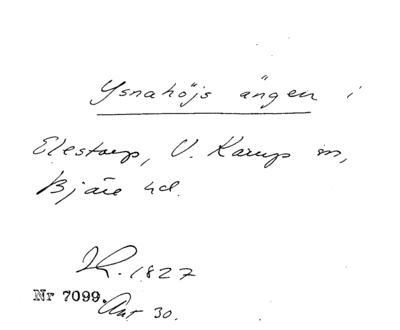 Ysnahöjs ängen i
Elestorp, V. Karup sn,
Bjäre hd.
1827
Nr 7099.
Ant 30.